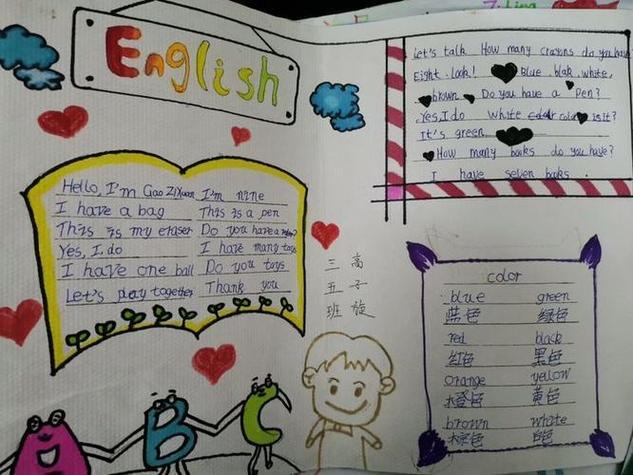 English
Hello, I'm Gao ZiXuan
I have a bag
This is my eraser
Yes, I do
I have one ball
Let's play together
I'm nine
This is a pen
Do you have a
I have many toys
Do you toys
Thank you
Let's talk How many crayons do you have
Eight. Look! Blue, blak, white,
brown. Do you have a Pen?
Yes, I do White color is it?
It's green
How many books do you have?
I have seven books
三五班
高子旋
color
blue green
蓝色 绿色
red black
红色 黑色
orange yellow
橙色 黄色
brown white
棕色 白色
A B C